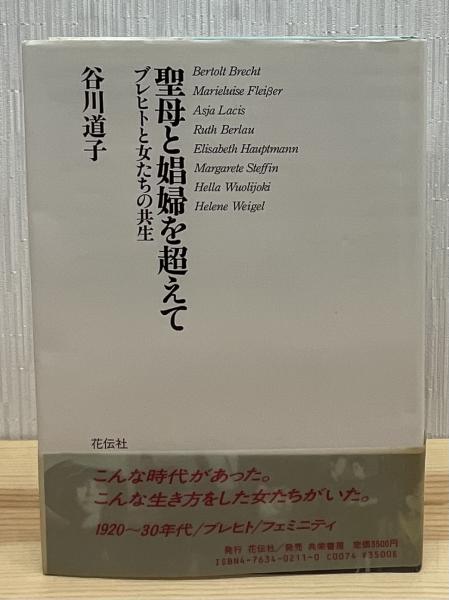 聖母と娼婦を超えて
ブレヒトと女たちの共生
谷川道子
Bertolt Brecht
Marieluise Fleißer
Asja Lacis
Ruth Berlau
Elisabeth Hauptmann
Margarete Steffin
Hella Wuolijoki
Helene Weigel
花伝社
こんな時代があった。
こんな生き方をした女たちがいた。
1920〜30年代/ブレヒト/フェミニティ
発行 花伝社/発売 共栄書房 定価3500円
ISBN4-7634-0211-0 C0074 ¥3500E